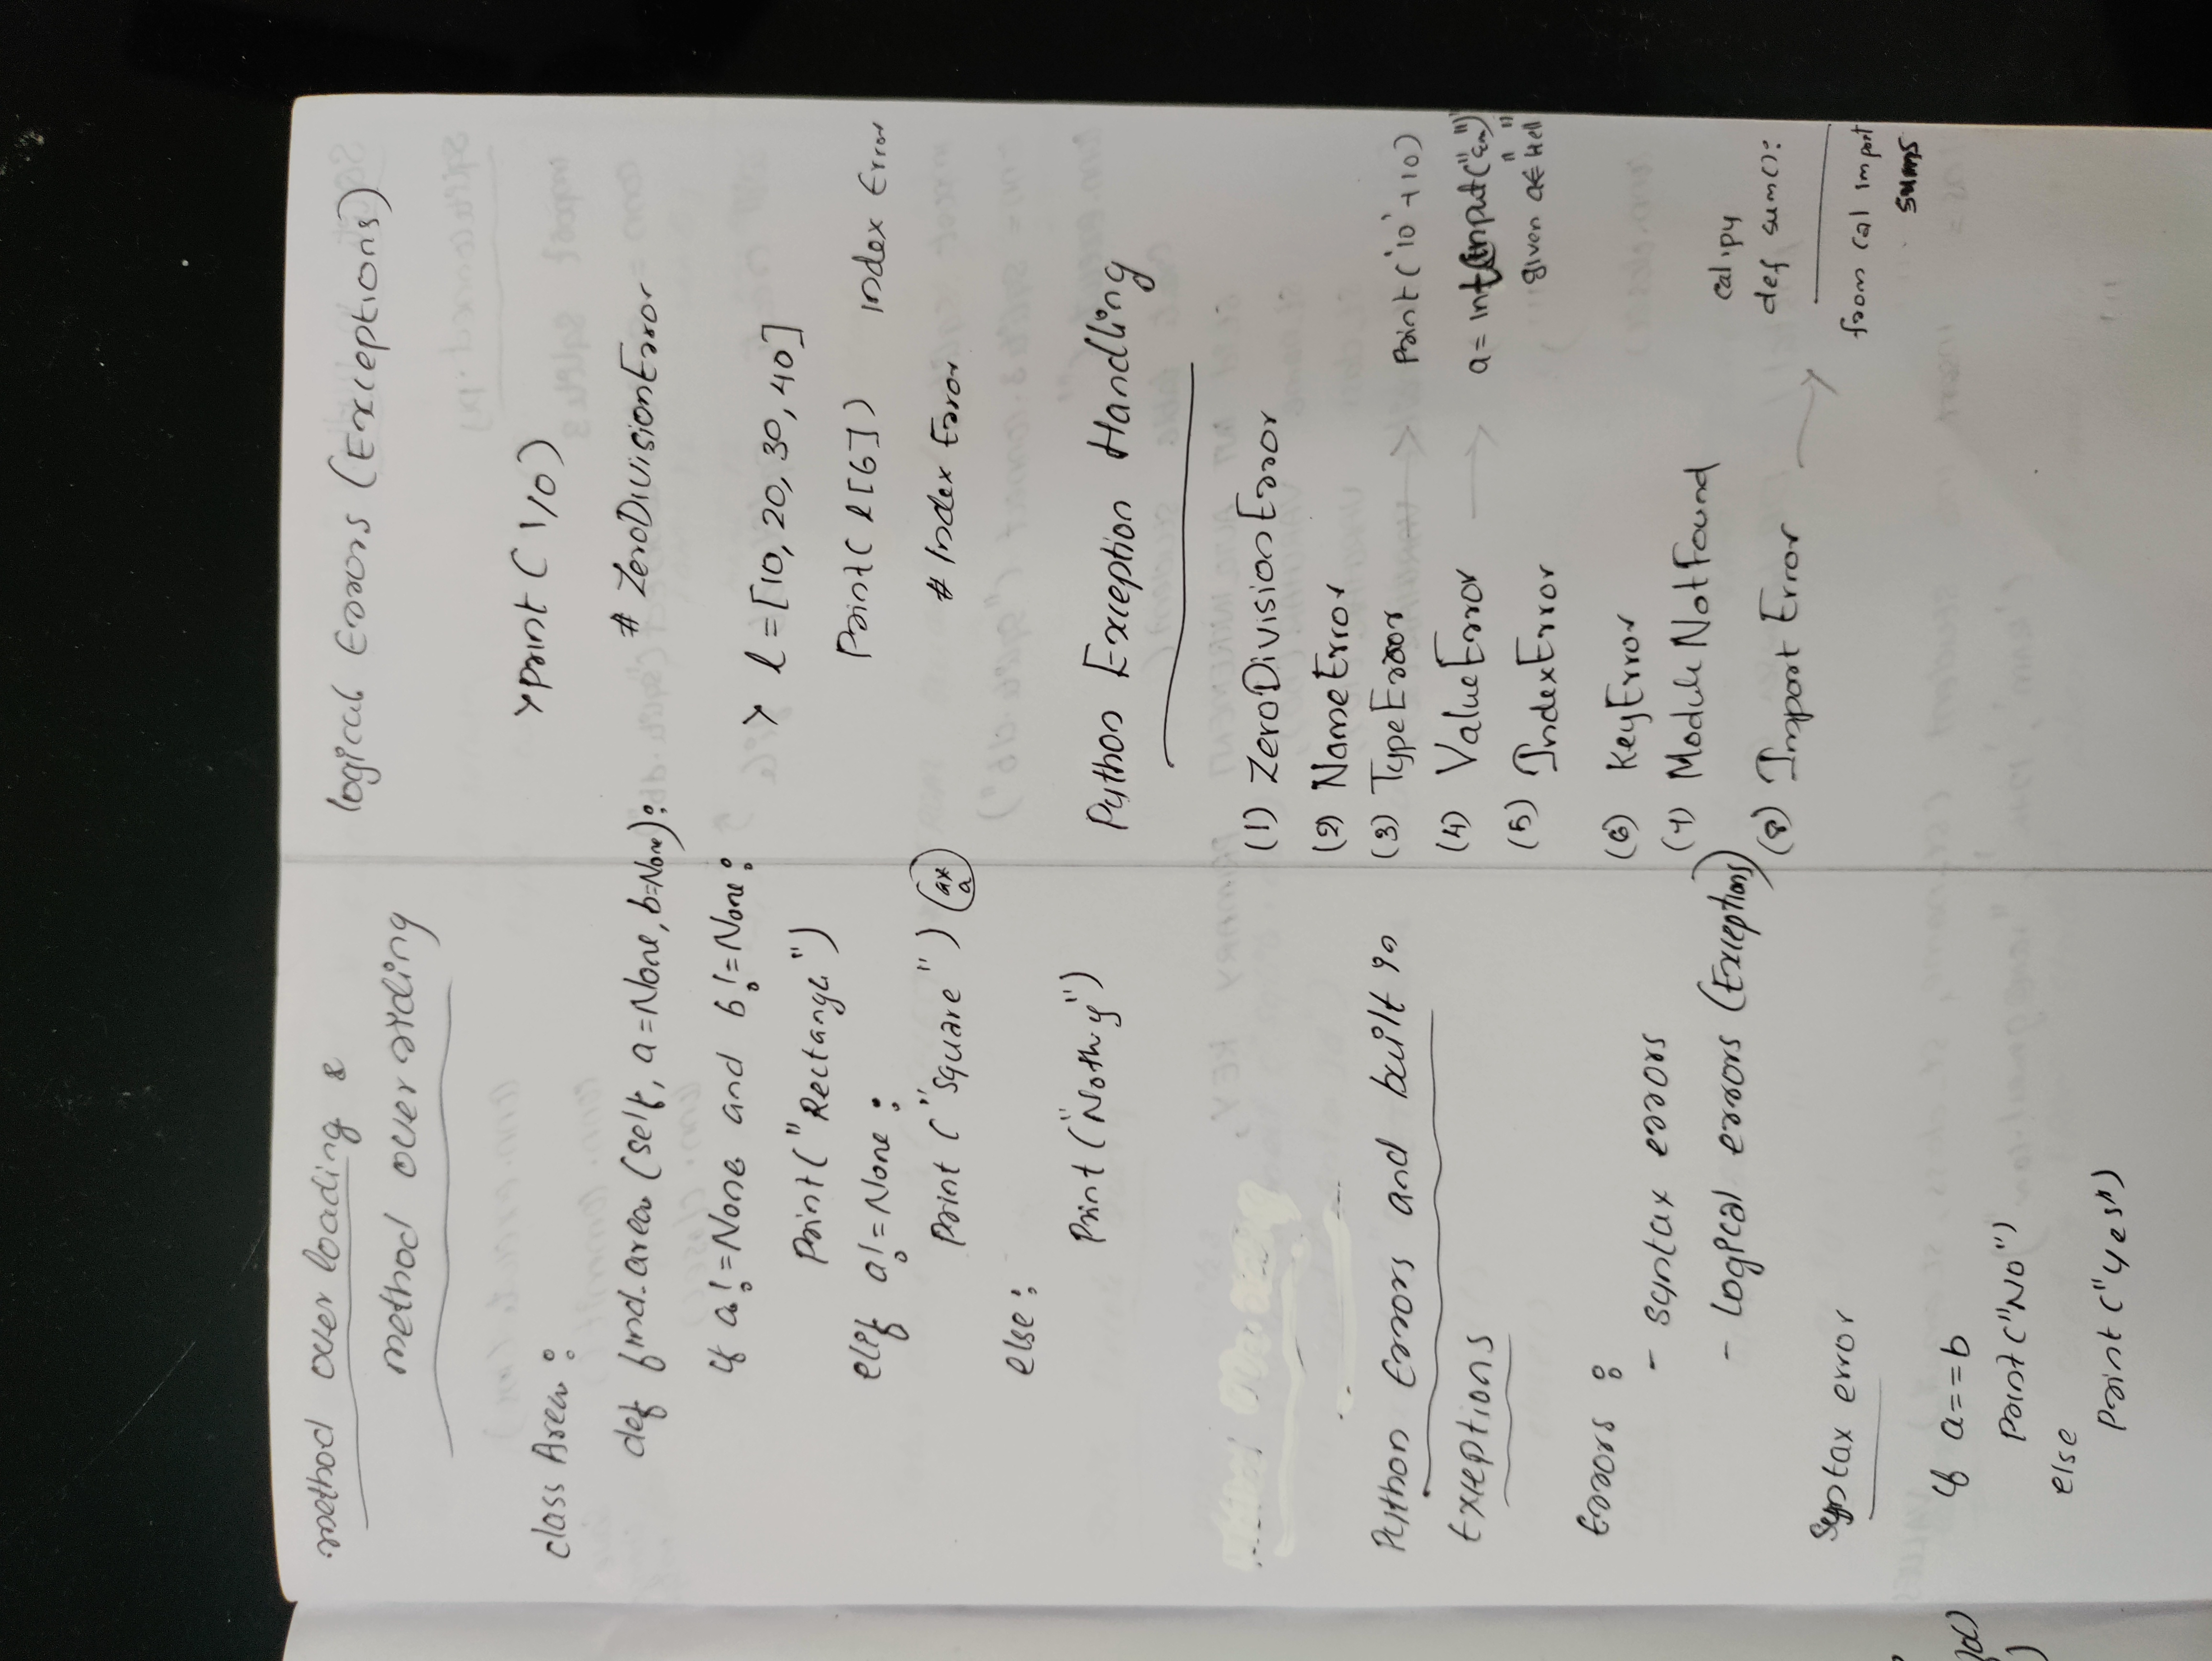 method over loading &
method over riding
class Area :
def find_area (self, a=None, b=None):
if a!=None and b!=None:
Print("Rectangle")
elif a!=None :
Print ("Square") ax a
else :
Print ("Nothing")
Python Errors and built in
Exceptions
Errors :
- syntax errors
- Logical errors (Exceptions)
Syntax error
if a==b
Print("No")
else
Print("Yes")
logical Errors (Exceptions)
> print (1/0)
# ZeroDivisionError
> l = [10, 20, 30, 40]
Print( l[6]) Index Error
# Index Error
Python Exception Handling
(1) ZeroDivisionError
(2) NameError
(3) TypeError < Print('10'+10)
(4) ValueError → a = int(input("En")
given a ← "Hell"
(5) IndexError
(6) KeyError
(7) Module NotFound
(8) Import Error →
cal.py
def sum():
from cal import
sums